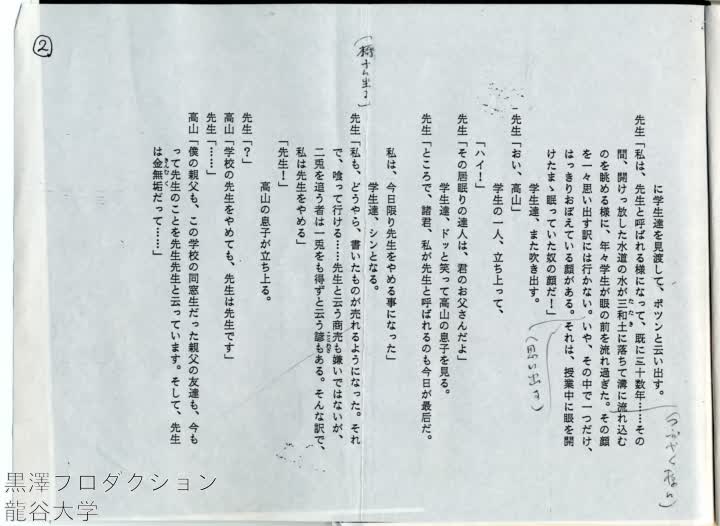 ②
に学生達を見渡して、ポツンと云い出す。
先生「私は、先生と呼ばれる様になって、既に三十数年……その
間、開けっ放した水道の水が三和土に落ちて溝に流れ込む
のを眺める様に、年々学生が眼の前を流れ過ぎた。その顔
を一々思い出す訳には行かない。いや、その中で一つだけ、
はっきりおぼえている顔がある。それは、授業中に眼を開
けたまゝ眠っていた奴の顔だ！」
学生達、また吹き出す。
先生「おい、高山」
学生の一人、立ち上って、
「ハイ！」
先生「その居眠りの達人は、君のお父さんだよ」
学生達、ドッと笑って高山の息子を見る。
先生「ところで、諸君、私が先生と呼ばれるのも今日が最后だ。
私は、今日限り先生をやめる事になった」
学生達、シンとなる。
先生「私も、どうやら、書いたものが売れるようになった。それ
で、喰って行ける……先生と云う商売も嫌いではないが、
二兎を追う者は一兎をも得ずと云う諺もある。そんな訳で、
私は先生をやめる」
「先生！」
高山の息子が立ち上る。
先生「？」
高山「学校の先生をやめても、先生は先生です」
先生「……」
高山「僕の親父も、この学校の同窓生だった親父の友達も、今も
って先生のことを先生先生と云っています。そして、先生
は金無垢だって……」
つぶやく様に
（思い出す）
黒澤プロダクション
龍谷大学